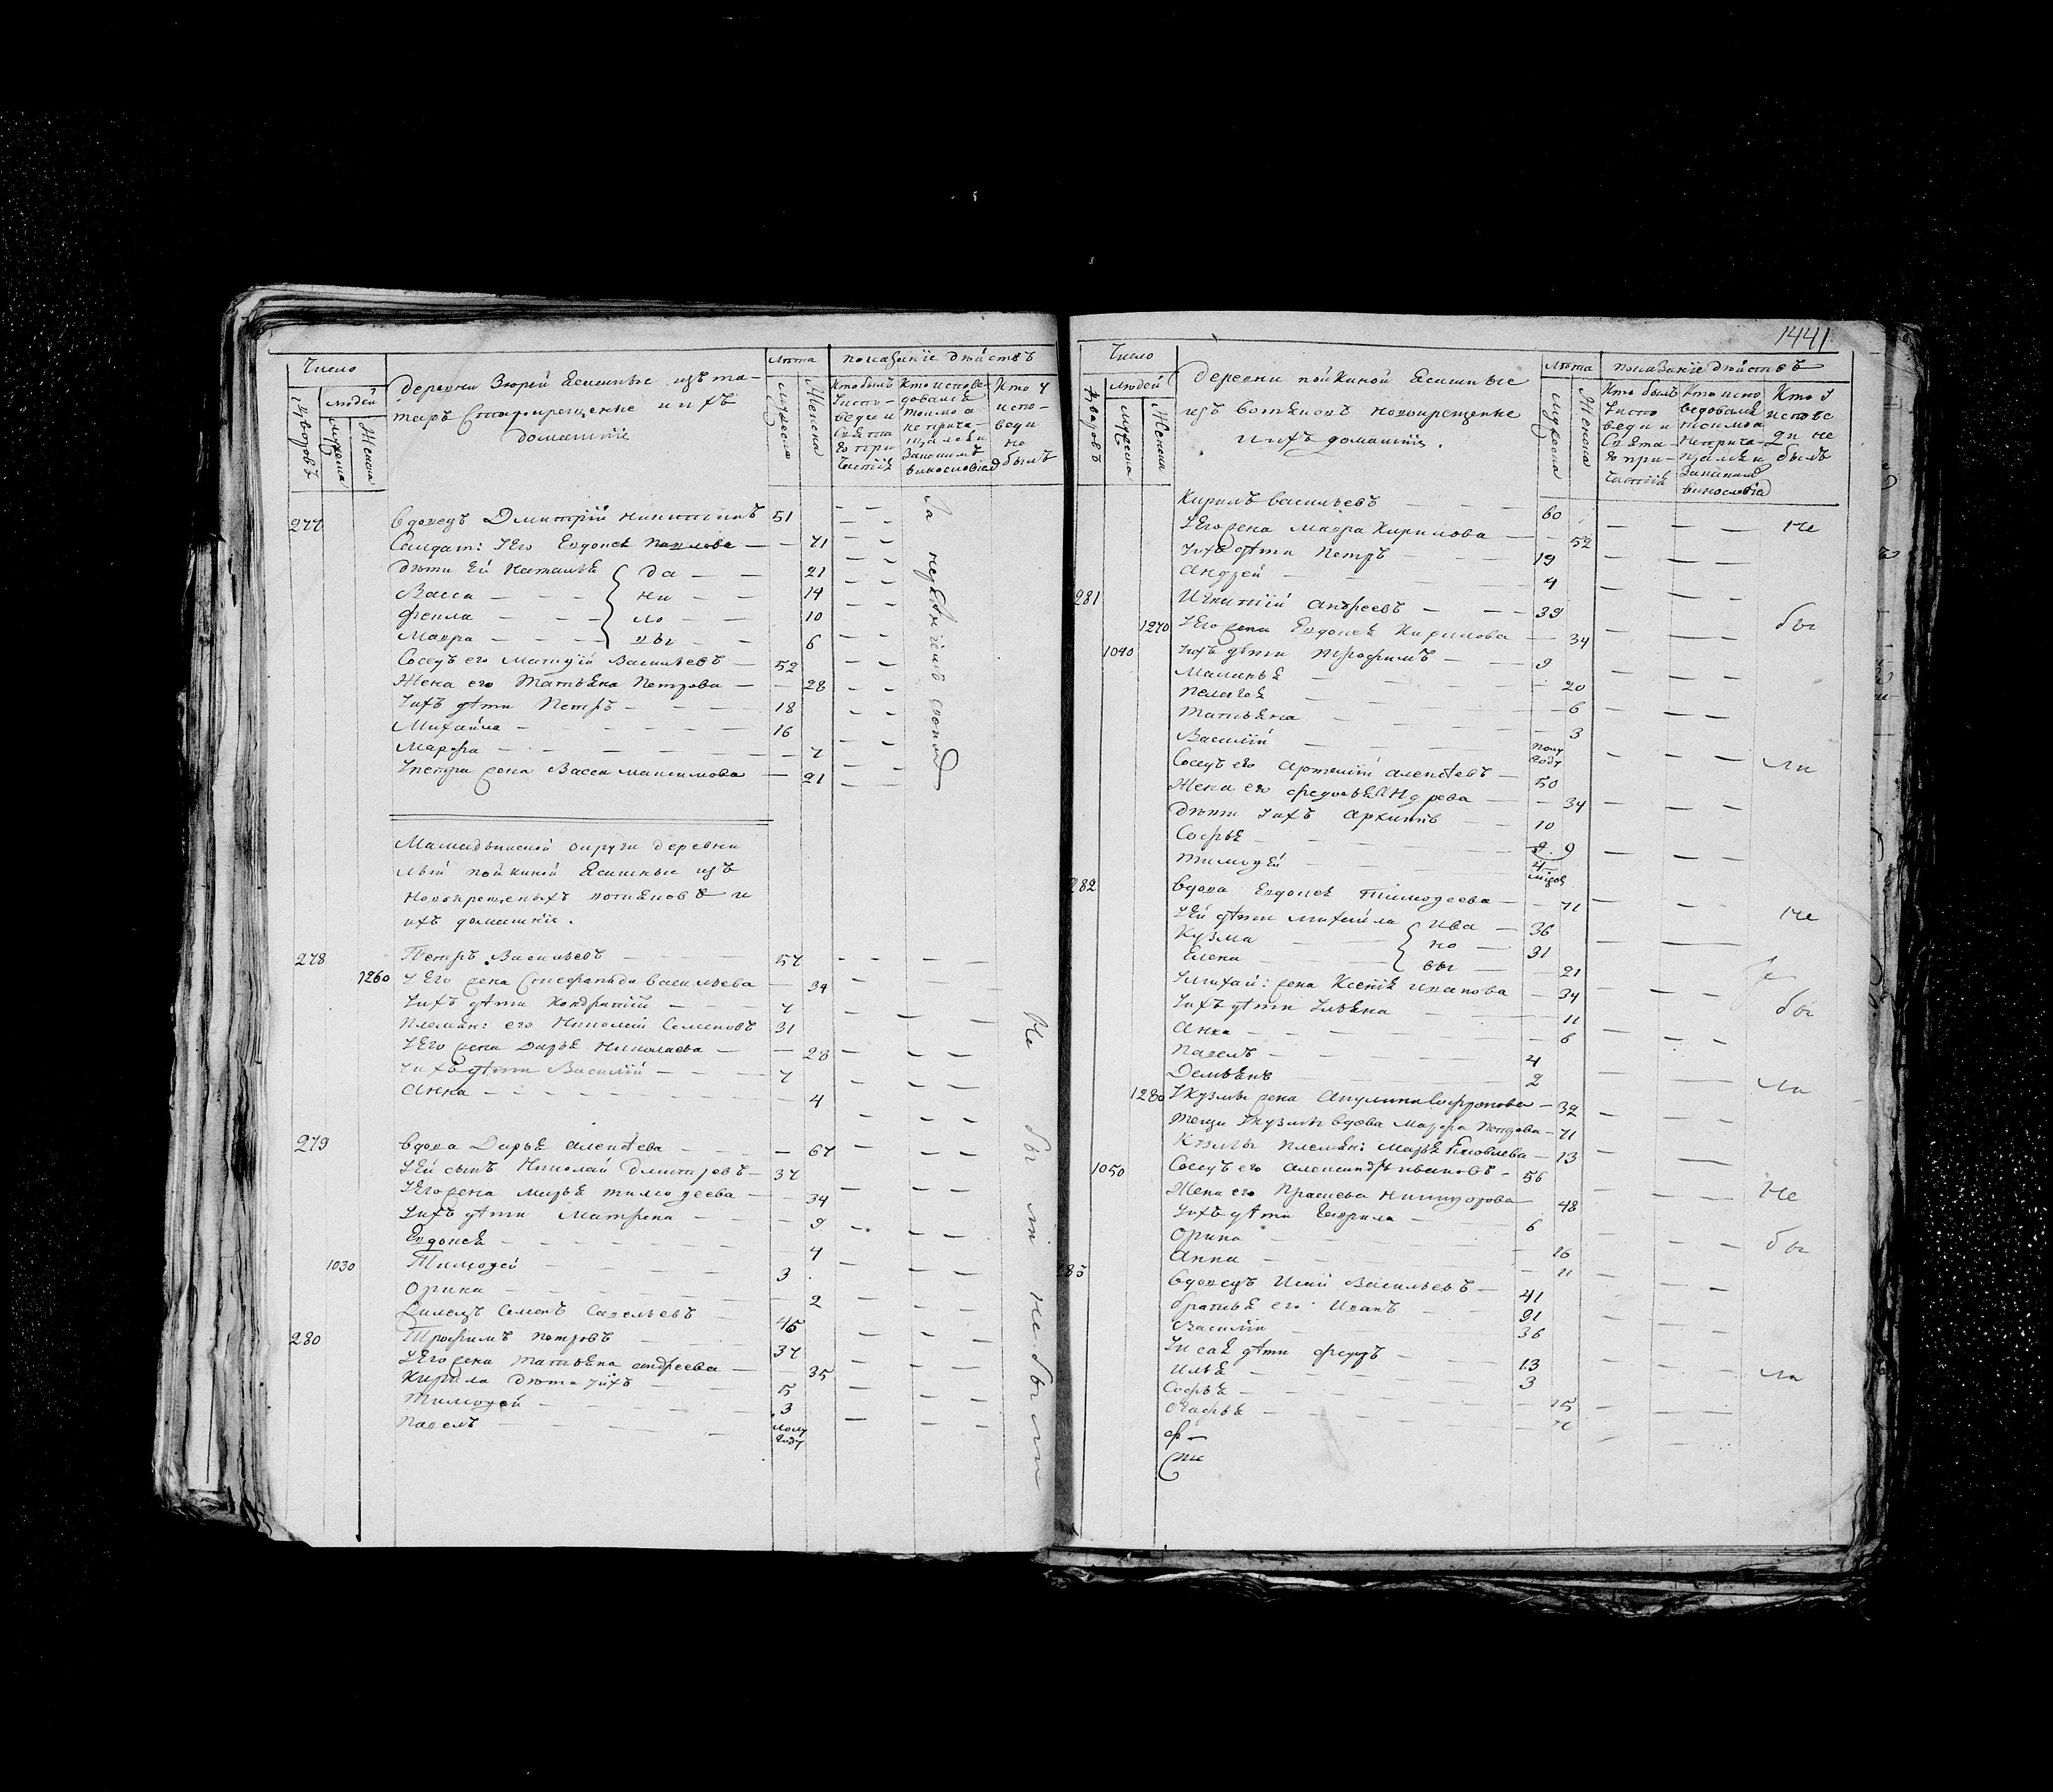 Число
людей
дворовъ
мужеска
Женска
деревни Зюрей Ясашные изъ та-
таръ Старокрещение и ихъ
домашние
лѣта
мужеска
Женска
показание дѣйствъ
Кто былъ
у испо-
веди и
Свята
го при
частия
Кто испове-
довался
токмо а
не прича-
щался и
за какимъ
винословиемъ
Кто у
испо-
веди
не
былъ
277 вдовецъ Дмитрий Никитинъ 51
Солдат: Его Евдокея Павлова — 71
дѣти Ей Наталья да — 21
Васса — ни — 14
Фекла — ло — 10
Мавра — вы — 6
Соседъ его Матвей Васильевъ — 52
Жена его Татьяна Петрова — 28
Уихъ дѣти Петръ — 18
Михайла — 16
Марфа — 7
Упетра жена Васса Максимова — 21
За нераченiемъ своимъ
Мамадышской округи деревни
пойкиной Ясашные изъ
новокрещеныхъ вотяковъ и
ихъ домашние .
278 Петръ Васильевъ — 57
1260 УЕго жена Стефанида Васильева — 34
Уихъ дѣти Кондратий — 7
Племян: его Николай Семеновъ 31
УЕго жена Дарья Николаева — 28
Уихъ дѣти Василий — 7
Анна — 4
279 вдова Дарья Алексѣева — 67
УЕй сынъ Николай Дмитриевъ — 37
УЕго жена Марья Тимофеева — 34
Уихъ дѣти Матрена — 9
Евдокея — 4
1030 Тимофей — 3
Орина — 2
Семенъ Савельевъ — 45
280 Трофимъ Петровъ — 37
УЕго жена Татьяна Андреева — 35
Кирила дѣти уихъ — 5
Тимофей — 3
Павелъ — полу году
Не бы ли не были
1441
Число
людей
дворовъ
мужеска
Женска
деревни пойкиной Ясашные
изъ вотяковъ новокрещение
и ихъ домашние .
лѣта
мужеска
Женска
показание дѣйствъ
Кто былъ
у испо
веди и
Свята-
го при-
частия
Кто испо
ведовался
токмо а
неприча-
щался и
закакимъ
винословиемъ
Кто у
испове
ди не
былъ
Кирилъ Васильевъ — 60
УЕго жена Мавра Кирилова — 52 Не
Уихъ дѣти Петръ — 19
Андрей — 4
281 Игнатий Андреевъ — 39
1270 УЕго жена Евдокея Кирилова — 34 бы
1040 Уихъ дѣти Трофимъ — 9
— 20
Пелагея — 6
Татьяна — 3
Василий — полу году
Соседъ его Артемий Алексѣевъ — 50 ли
Жена его Федосья Андрева — 34
дѣти уихъ Архипъ — 10
Софья — 9
Тимофей — 4
282 вдова Евдокея Тимофеева — 71
УЕй дѣти Михайла ива — 36 Не
Кузма но — 31
Елена вы — 21
Умихай: жена Ксения Иванова — 34
Уихъ дѣти Ульяна — 11 бы
Анна — 6
Павелъ — 4
Демьянъ — 2
1280 Укузмы жена Акулина Софронова — 32 ли
теща Укузмы вдова Марфа — 71
Кузмы племян: Марья Яковлева — 13
1050 Соседъ его Александръ Ивановъ — 56
Жена его Прасковья — 48 Не
Уихъ дѣти Гаврила — 6
Орина — 16 бы
Анна — 11
вдовецъ Исай Васильевъ — 41
братья его Иванъ — 21
Василий — 36
Уисая дѣти Федоръ — 13
Илья — 3 ли
Софья — 15